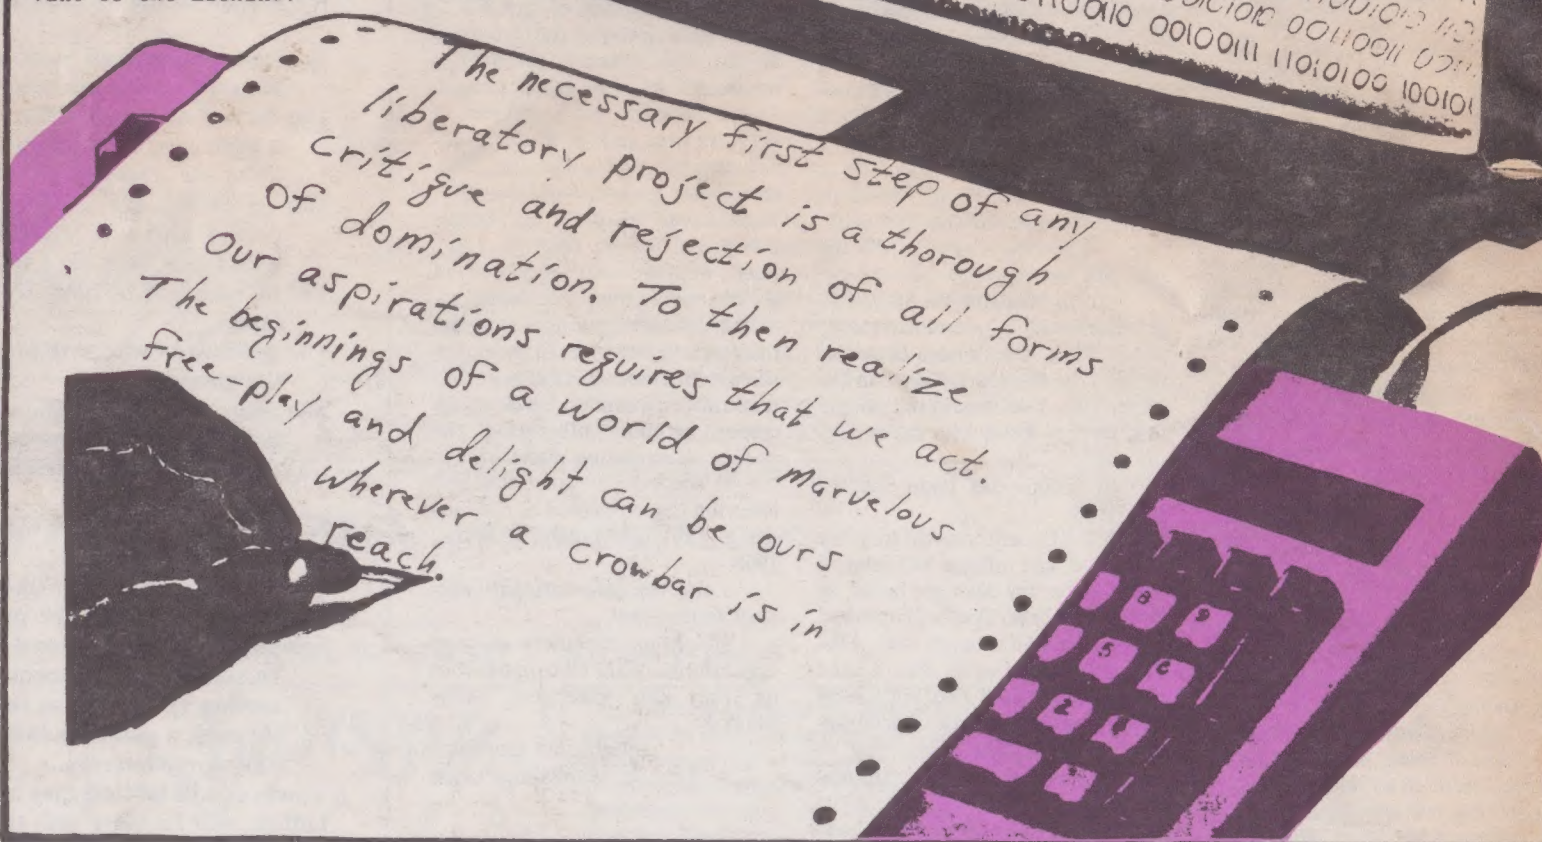 The necessary first step of any
liberatory project is a thorough
critique and rejection of all forms
of domination. To then realize
our aspirations requires that we act.
The beginnings of a world of marvelous
free-play and delight can be ours
wherever a crowbar is in
reach.
00100111 11010100
8 9
5 6
2